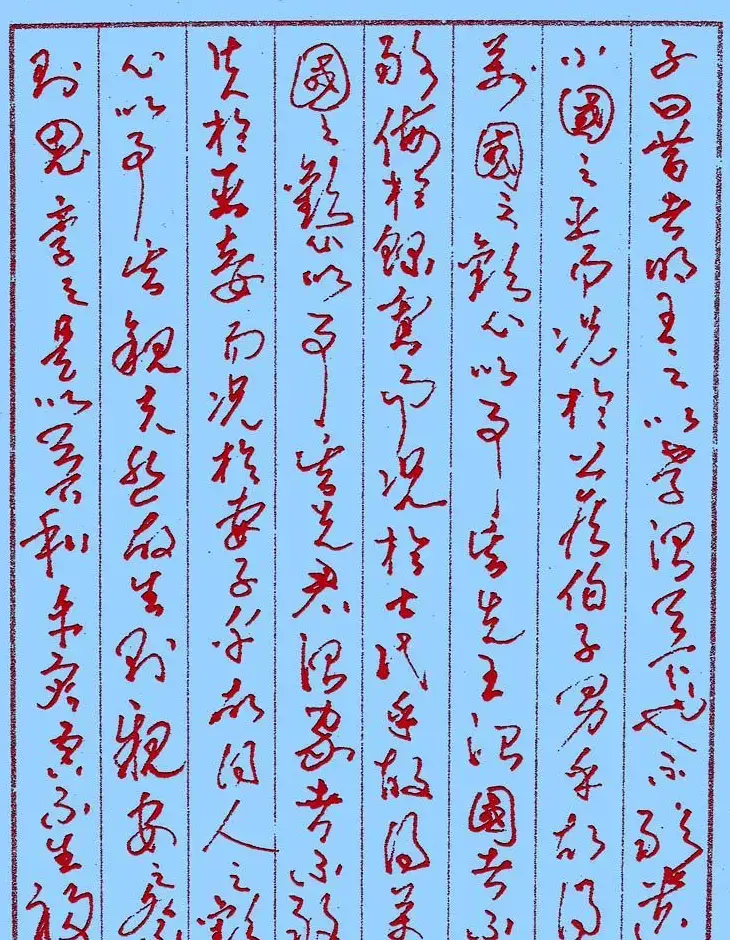 子曰昔者明王之以孝治天下也不敢遺
小國之臣而況於公侯伯子男乎故得
萬國之歡心以事其先王治國者不
敢侮於鰥寡而況於士民乎故得萬
國之歡心以事其先君治家者不敢
失於臣妾而況於妻子乎故得人之歡
心以事其親夫然故生則親安之祭
則鬼享之是以天下和平災害不生禍